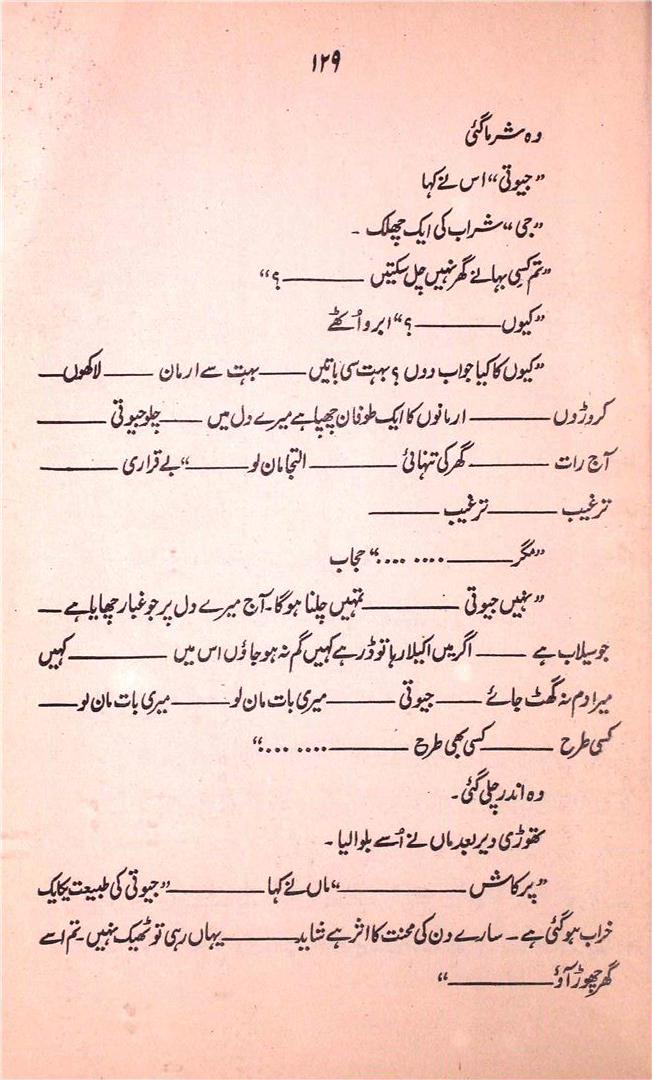 ۱۲۹
وہ شرما گئی
”جیوتی“ اس نے کہا
”جی“ شراب کی ایک چھلک ۔
”تم کسی بہانے گھر نہیں چل سکتیں ——— ؟“
”کیوں ——— ؟“ ابرو اُٹھے
”کیوں کا کیا جواب دوں ؟ بہت سی باتیں ——— بہت سے ارمان ——— لاکھوں ———
کروڑوں ——— ارمانوں کا ایک طوفان چھپا ہے میرے دل میں ——— چلو جیوتی ———
آج رات ——— گھر کی تنہائی ——— التجا مان لو ——— “ بے قراری ———
ترغیب ——— ترغیب ———
”مگر ——— .... ....“ حجاب
”نہیں جیوتی ——— تمہیں چلنا ہوگا۔ آج میرے دل پر جو غبار چھایا ہے ———
جو سیلاب ہے ——— اگر میں اکیلا رہا تو ڈر ہے کہیں گم نہ ہو جاؤں اس میں ——— کہیں
میرا دم نہ گھٹ جائے ——— جیوتی ——— میری بات مان لو ——— میری بات مان لو ———
کسی طرح ——— کسی بھی طرح ——— .... ....“
وہ اندر چلی گئی۔
تھوڑی دیر بعد ماں نے اُسے بلوالیا ۔
”پرکاش ——— “ ماں نے کہا ——— ”جیوتی کی طبیعت یکایک
خراب ہوگئی ہے ۔ سارے دن کی محنت کا اثر ہے شاید ——— یہاں رہی تو ٹھیک نہیں۔ تم اسے
گھر چھوڑ آؤ ——— “